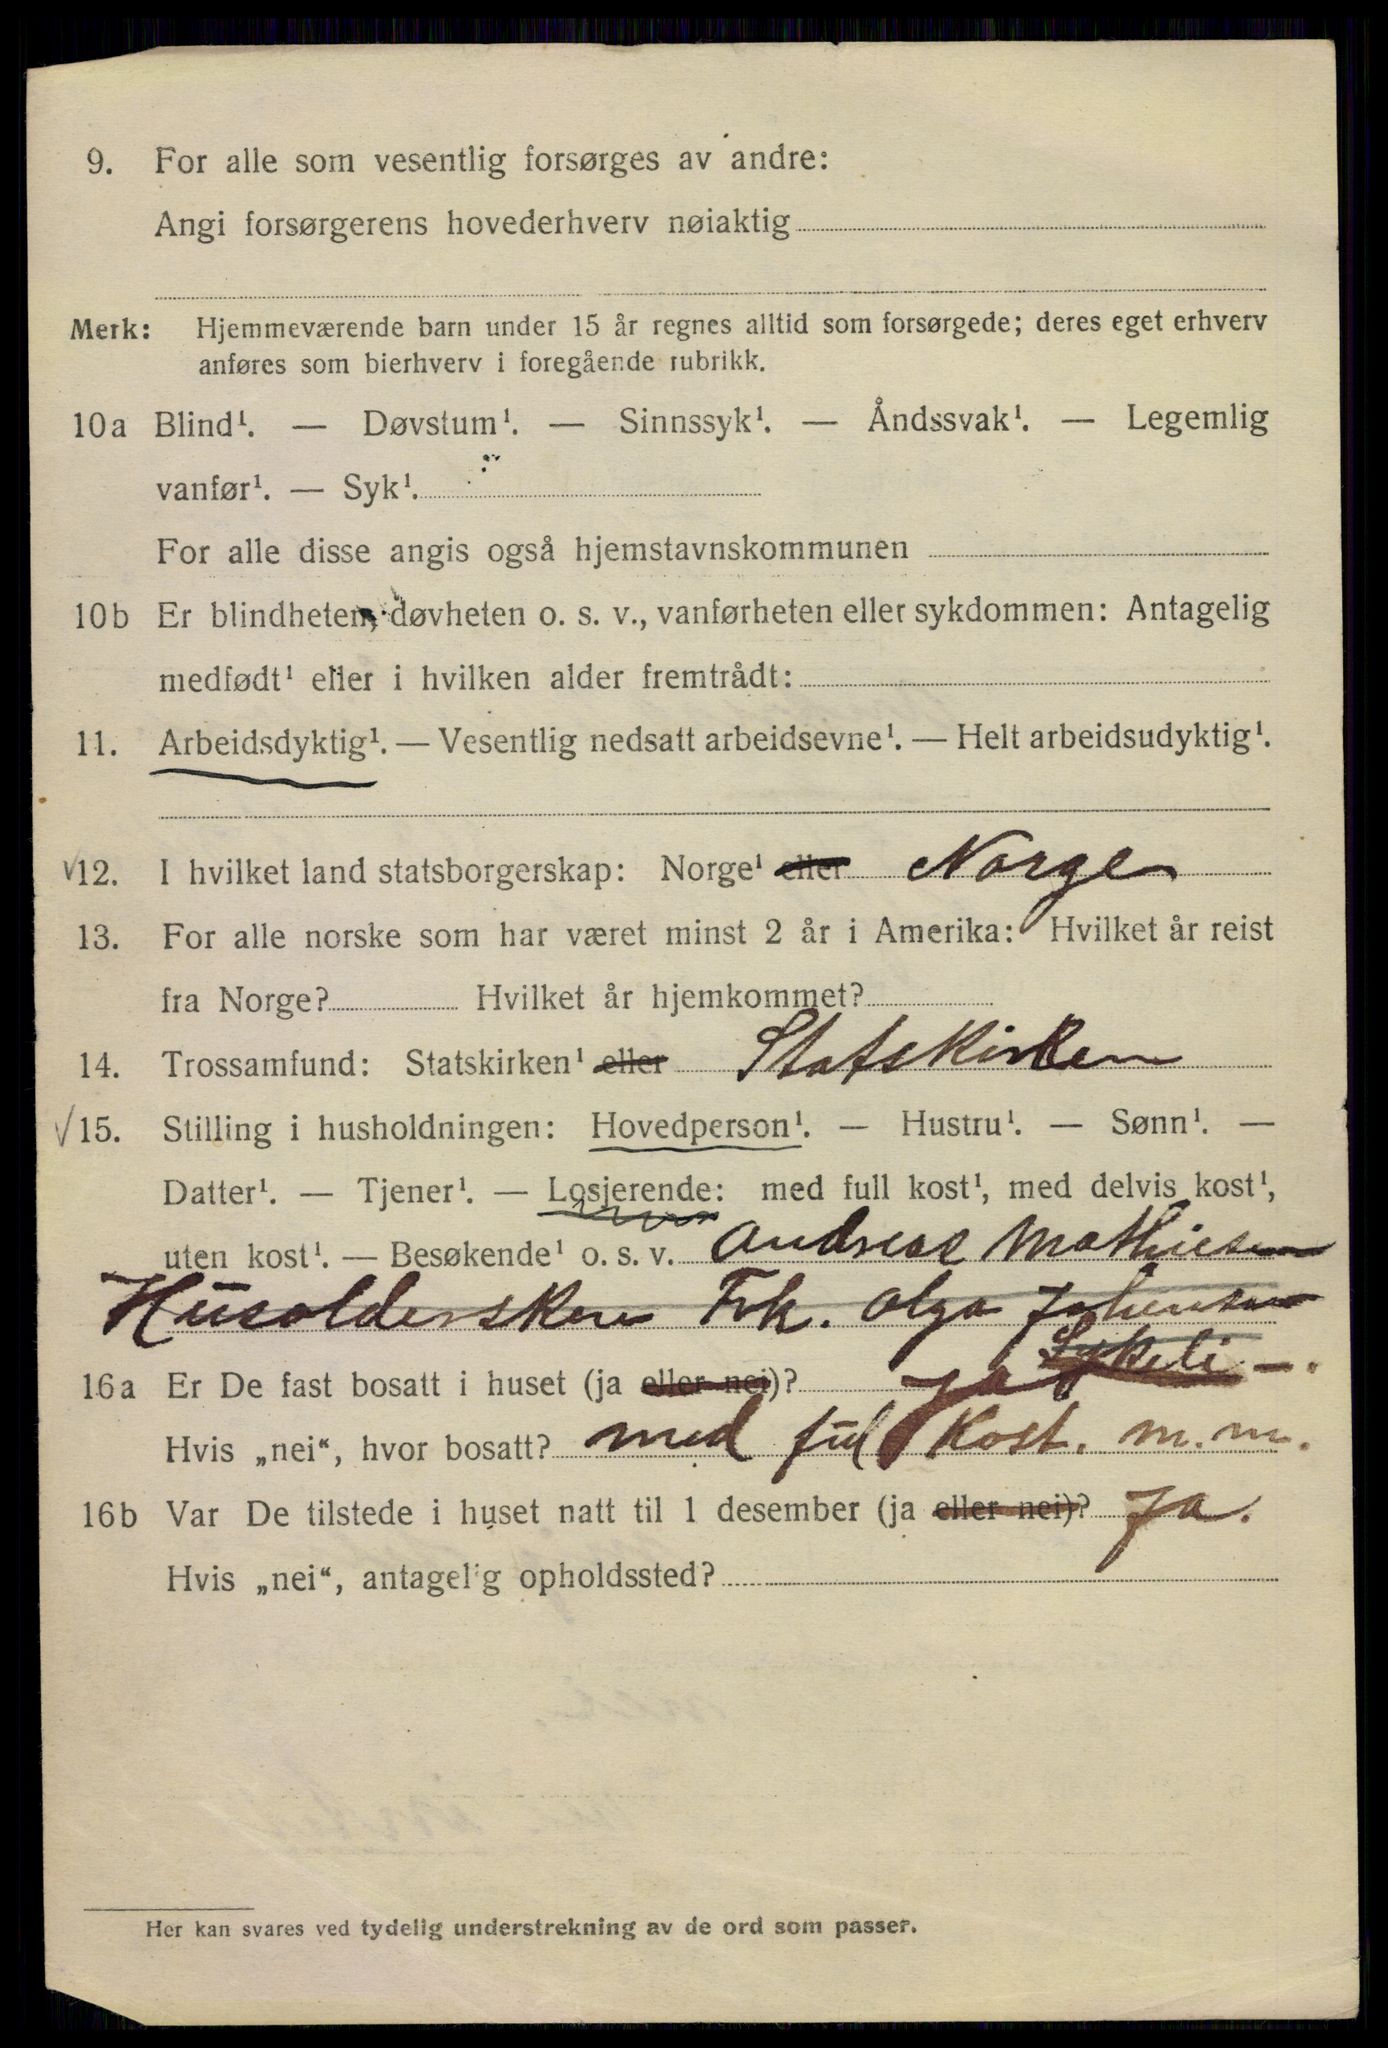 9. For alle som vesentlig forsørges av andre:
Angi forsørgerens hovederhverv nøiaktig
Merk: Hjemmeværende barn under 15 år regnes alltid som forsørgede; deres eget erhverv
anføres som bierhverv i foregående rubrikk.
10a Blind¹. — Døvstum¹. — Sinnssyk¹. — Åndssvak¹. — Legemlig
vanfør¹. — Syk¹.
For alle disse angis også hjemstavnskommunen
10b Er blindheten, døvheten o. s. v., vanførheten eller sykdommen: Antagelig
medfødt¹ eller i hvilken alder fremtrådt:
11. Arbeidsdyktig¹. — Vesentlig nedsatt arbeidsevne¹. — Helt arbeidsudyktig¹.
√12. I hvilket land statsborgerskap: Norge¹ eller Norge
13. For alle norske som har været minst 2 år i Amerika: Hvilket år reist
fra Norge? Hvilket år hjemkommet?
14. Trossamfund: Statskirken¹ eller Statskirken
√15. Stilling i husholdningen: Hovedperson¹. — Hustru¹. — Sønn¹. —
Datter¹. — Tjener¹. — Losjerende: med full kost¹, med delvis kost¹,
uten kost¹. — Besøkende¹ o. s. v. Andreas Mathiesen
Husoldersken Frk. Olga Johensen
16a Er De fast bosatt i huset (ja eller nei)? ja
Hvis „nei“, hvor bosatt? med ful Kost. m.m.
16b Var De tilstede i huset natt til 1 desember (ja eller nei)? Ja.
Hvis „nei“, antagelig opholdssted?
Her kan svares ved tydelig understrekning av de ord som passer.